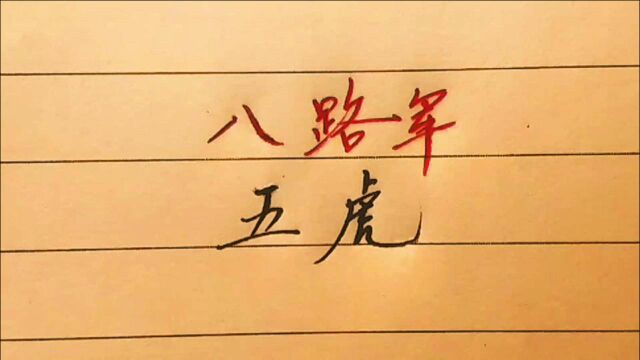 八路军
五虎